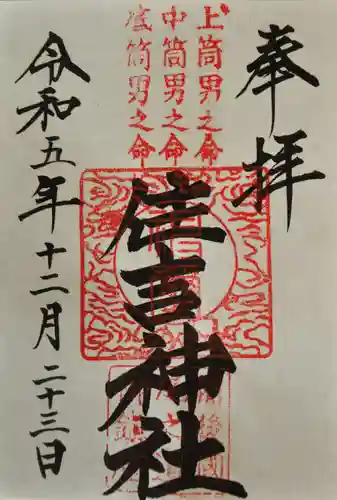 奉拝
上筒男之命
中筒男之命
底筒男之命
住吉神社
令和五年十二月二十三日